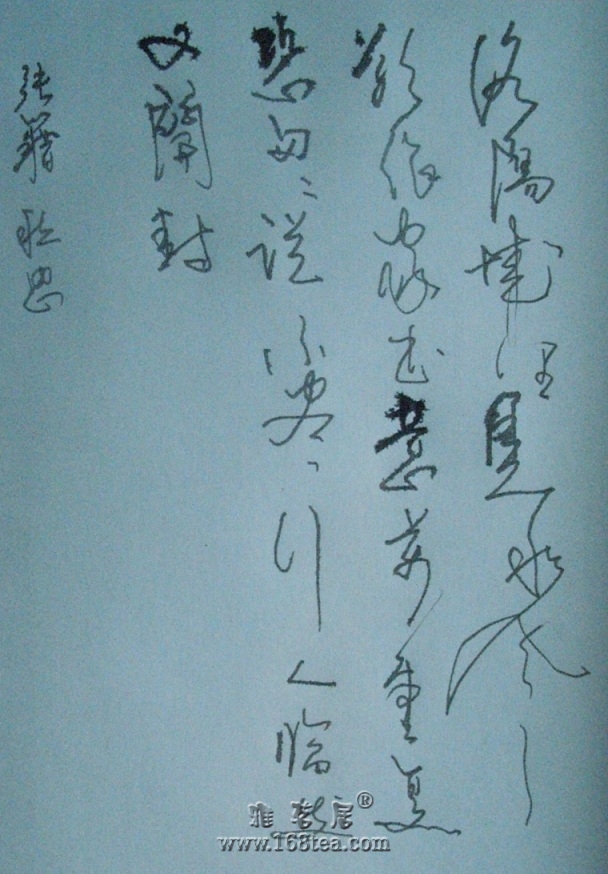 洛陽城里見秋風
欲作家书意萬重复
恐匆匆説不尽行人臨發
又開封
張籍秋思
雅茗居®
www.168tea.com